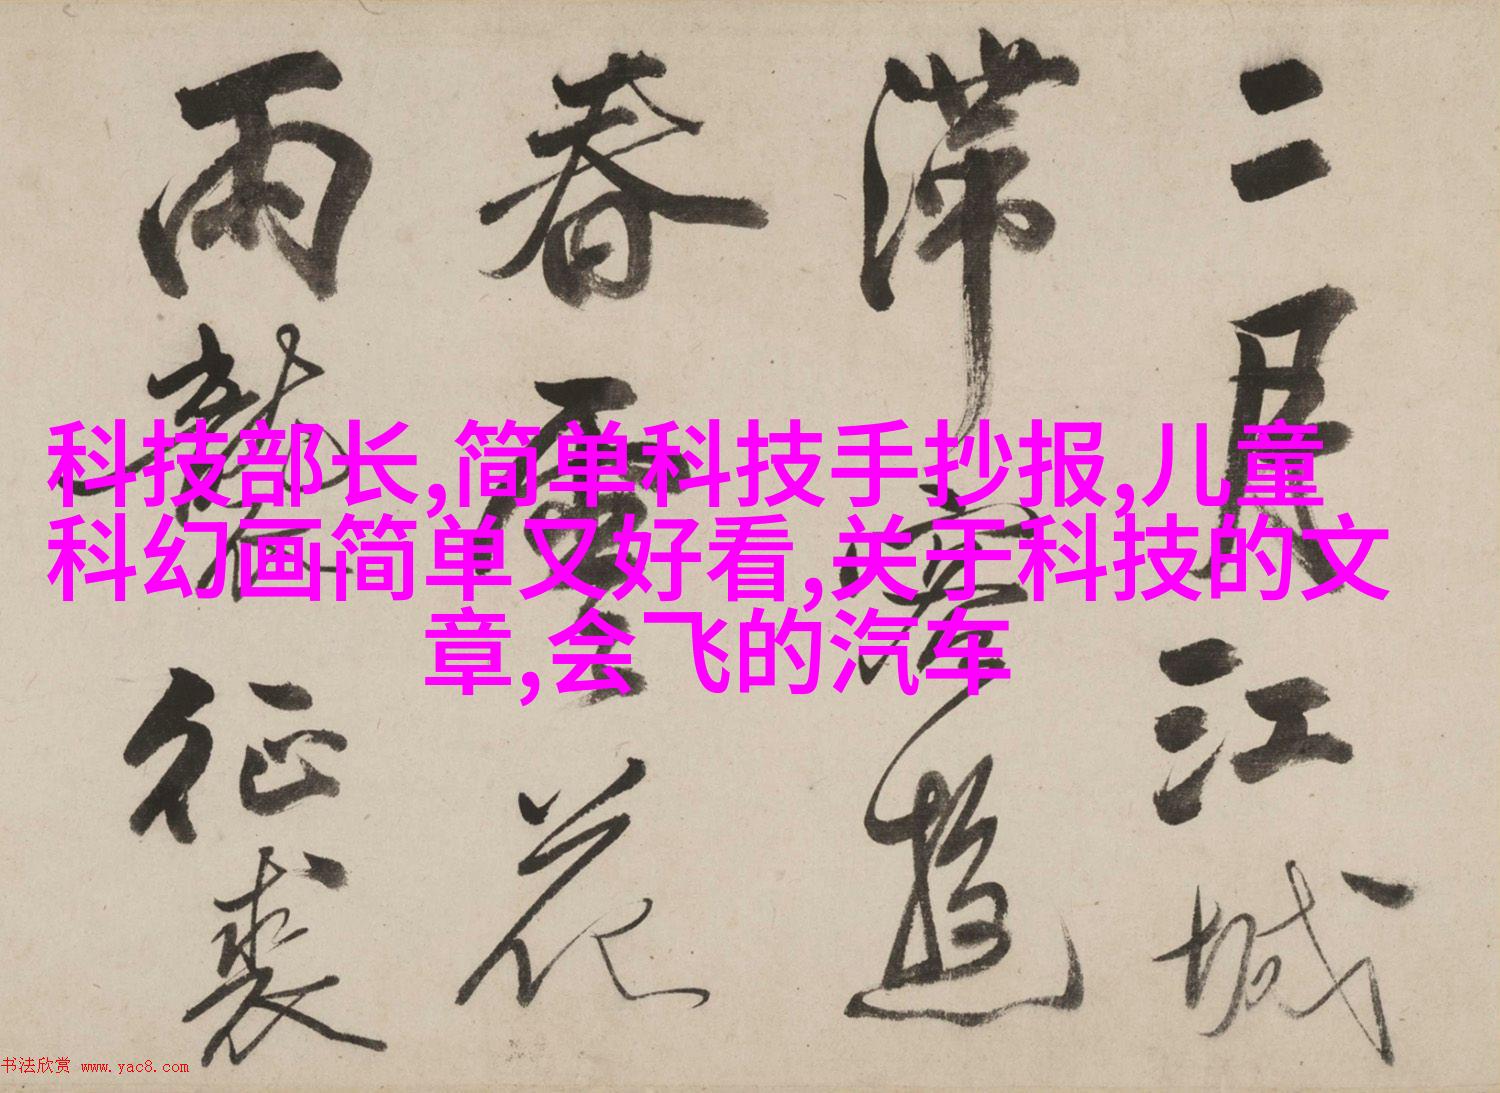 二月江城
滞遊
春花
雨征裘
科技部长,简单科技手抄报,儿童
科幻画简单又好看,关于科技的文
章,会飞的汽车
书法欣赏 www.yac8.com